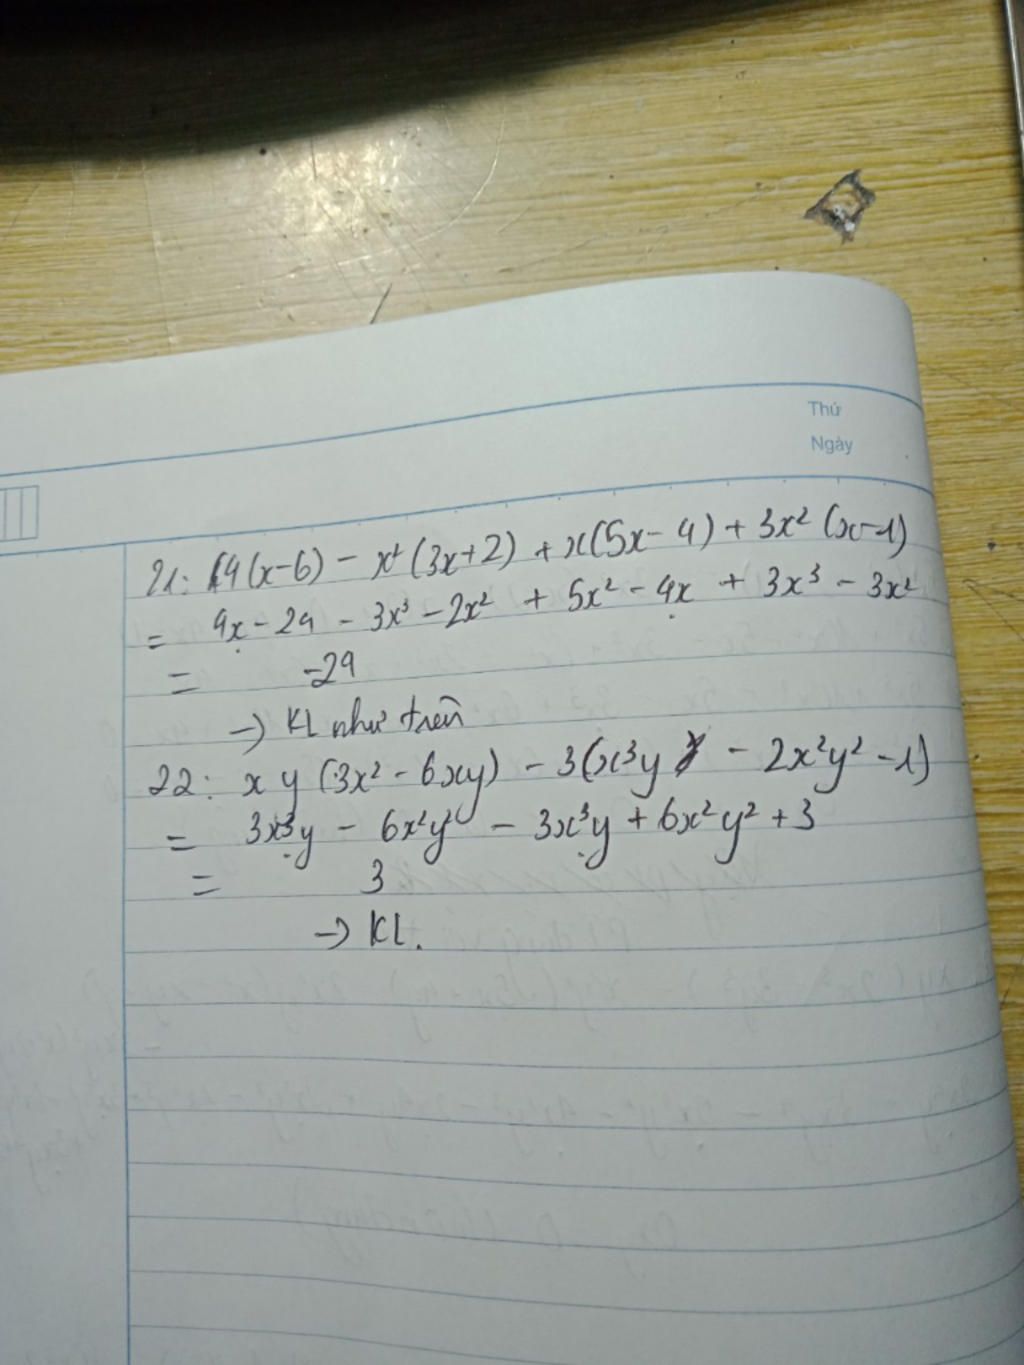 Thứ
Ngày
21: 4(x-6) - x²(3x+2) + x(5x-4) + 3x²(x-1)
= 4x - 24 - 3x³ - 2x² + 5x² - 4x + 3x³ - 3x²
= -24
→ KL như trên
22: xy(3x² - 6xy) - 3(x³y - 2x²y² - 1)
= 3x³y - 6x²y² - 3x³y + 6x²y² + 3
= 3
→ KL.